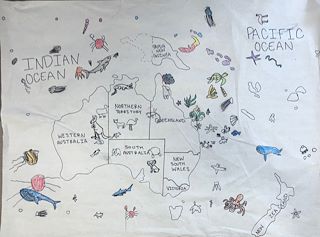 INDIAN
OCEAN
PACIFIC
OCEAN
PAPUA
NEW
GUINEA
NORTHERN
TERRITORY
QUEENSLAND
WESTERN
AUSTRALIA
SOUTH
AUSTRALIA
NEW
SOUTH
WALES
VICTORIA
NEW ZEALAND